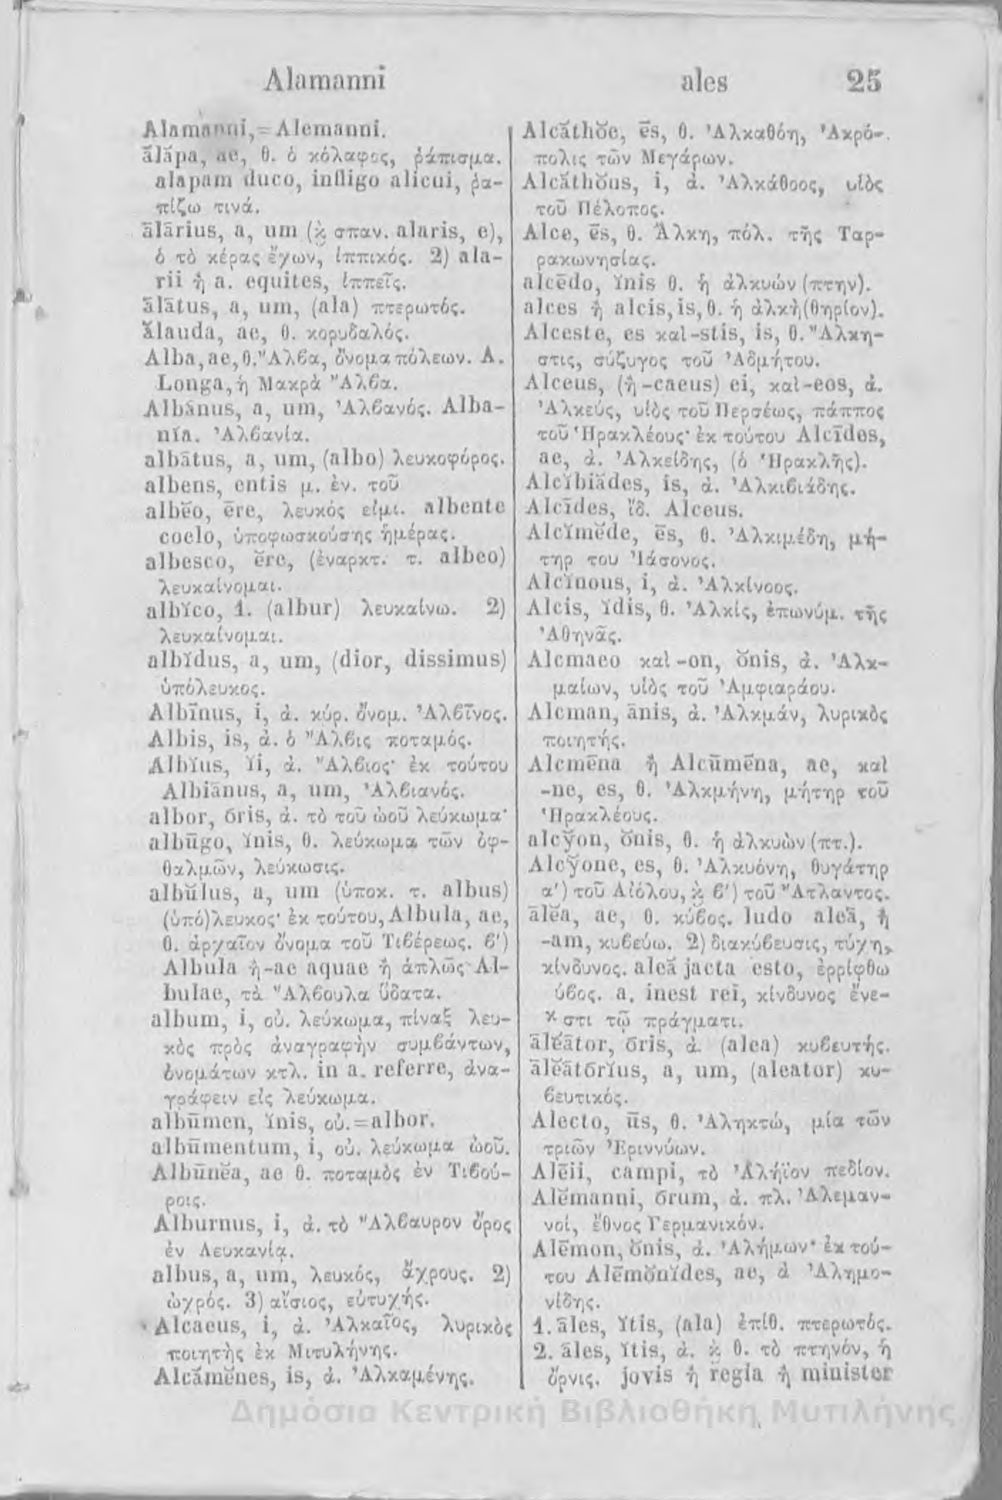 Alamanni
ales 25
Alamanni,=Alemanni.
ălăpa, ae, θ. ὁ κόλαφος, ῥάπισμα.
alapam duco, infligo alicui, ῥα-
πίζω τινά.
ālārius, a, um (ϗ σπαν. alaris, e),
ὁ τὸ κέρας ἔχων, ἱππικός. 2) ala-
rii ἢ a. equites, ἱππεῖς.
ālātus, a, um, (ala) πτερωτός.
ălauda, ae, θ. κορυδαλός.
Alba, ae, θ. Ἄλϐα, ὄνομα πόλεων. A.
Longa, ἡ Μακρὰ Ἄλϐα.
Albānus, a, um, Ἀλϐανός. Alba-
nĭa. Ἀλϐανία.
albātus, a, um, (albo) λευκοφόρος.
albens, entis μ. ἐν. τοῦ
albĕo, ēre, λευκός εἰμι. albente
coelo, ὑποφωσκούσης ἡμέρας.
albesco, ĕre, (ἐναρκτ. τ. albeo)
λευκαίνομαι.
albĭco, 1. (albur) λευκαίνω. 2)
λευκαίνομαι.
albĭdus, a, um, (dior, dissimus)
ὑπόλευκος.
Albīnus, i, ἀ. κύρ. ὄνομ. Ἀλϐῖνος.
Albis, is, ἀ. ὁ Ἄλϐις ποταμός.
Albĭus, ĭi, ἀ. Ἄλϐιος· ἐκ τούτου
Albiānus, a, um, Ἀλϐιανός.
albor, ōris, ἀ. τὸ τοῦ ὠοῦ λεύκωμα·
albūgo, ĭnis, θ. λεύκωμα τῶν ὀφ-
θαλμῶν, λεύκωσις.
albŭlus, a, um (ὑποκ. τ. albus)
(ὑπό)λευκος· ἐκ τούτου, Albula, ae,
θ. ἀρχαῖον ὄνομα τοῦ Τιϐέρεως. ϐ′)
Albula ἢ -ae aquae ἢ ἁπλῶς Al-
bulae, τὰ Ἄλϐουλα ὕδατα.
album, i, οὐ. λεύκωμα, πίναξ λευ-
κὸς πρὸς ἀναγραφὴν συμϐάντων,
ὀνομάτων κτλ. in a. referre, ἀνα-
γράφειν εἰς λεύκωμα.
albūmen, ĭnis, οὐ.=albor.
albūmentum, i, οὐ. λεύκωμα ὠοῦ.
Albūnĕa, ae θ. ποταμὸς ἐν Τιϐού-
ροις.
Alburnus, i, ἀ. τὸ Ἄλϐαυρον ὄρος
ἐν Λευκανίᾳ.
albus, a, um, λευκός, ἄχρους. 2)
ὠχρός. 3) αἴσιος, εὐτυχής.
Alcaeus, i, ἀ. Ἀλκαῖος, λυρικὸς
ποιητὴς ἐκ Μιτυλήνης.
Alcămĕnes, is, ἀ. Ἀλκαμένης.
Alcăthŏe, ēs, θ. Ἀλκαθόη, Ἀκρό-
πολις τῶν Μεγάρων.
Alcăthŏus, i, ἀ. Ἀλκάθοος, υἱὸς
τοῦ Πέλοπος.
Alce, ēs, θ. Ἄλκη, πόλ. τῆς Ταρ-
ρακωνησίας.
alcēdo, ĭnis θ. ἡ ἀλκυών (πτην).
alces ἢ alcis, is, θ. ἡ ἀλκὴ (θηρίον).
Alceste, es καὶ -stis, is, θ. Ἄλκη-
στις, σύζυγος τοῦ Ἀδμήτου.
Alceus, (ἢ -caeus) ei, καὶ -eos, ἀ.
Ἀλκεύς, υἱὸς τοῦ Περσέως, πάππος
τοῦ Ἡρακλέους· ἐκ τούτου Alcīdes,
ae, ἀ. Ἀλκείδης, (ὁ Ἡρακλῆς).
Alcĭbiădes, is, ἀ. Ἀλκιϐιάδης.
Alcīdes, ἴδ. Alceus.
Alcĭmĕde, ēs, θ. Ἀλκιμέδη, μή-
τηρ του Ἰάσονος.
Alcĭnous, i, ἀ. Ἀλκίνοος.
Alcis, ĭdis, θ. Ἀλκίς, ἐπωνύμ. τῆς
Ἀθηνᾶς.
Alcmaeo καὶ -on, ŏnis, ἀ. Ἀλκ-
μαίων, υἱὸς τοῦ Ἀμφιαράου.
Alcman, ānis, ἀ. Ἀλκμάν, λυρικὸς
ποιητής.
Alcmēna ἢ Alcŭmēna, ae, καὶ
-ne, es, θ. Ἀλκμήνη, μήτηρ τοῦ
Ἡρακλέους.
alcy̆on, ŏnis, θ. ἡ ἀλκυὼν (πτ.).
Alcy̆one, es, θ. Ἀλκυόνη, θυγάτηρ
α′) τοῦ Αἰόλου, ϗ ϐ′) τοῦ Ἄτλαντος.
ālĕa, ae, θ. κύϐος. ludo aleā, ἢ
-am, κυϐεύω. 2) διακύϐευσις, τύχη,
κίνδυνος. aleă jacta esto, ἐρρίφθω
ύϐος. a. inest rei, κίνδυνος ἔνε-
κ στι τῷ πράγματι.
ālĕātor, ōris, ἀ. (alea) κυϐευτής.
ālĕātōrĭus, a, um, (aleator) κυ-
ϐευτικός.
Alecto, ūs, θ. Ἀληκτώ, μία τῶν
τριῶν Ἐριννύων.
Alēii, campi, τὸ Ἀλήϊον πεδίον.
Alĕmanni, ōrum, ἀ. πλ. Ἀλεμαν-
νοί, ἔθνος Γερμανικόν.
Alēmon, ŏnis, ἀ. Ἀλήμων· ἐκ τού-
του Alēmŏnĭdes, ae, ἀ Ἀλημο-
νίδης.
1. āles, ĭtis, (ala) ἐπίθ. πτερωτός.
2. āles, ĭtis, ἀ. ϗ θ. τὸ πτηνόν, ἡ
ὄρνις. jovis ἢ regia ἢ minister
Δημόσια Κεντρική Βιβλιοθήκη Μυτιλήνης